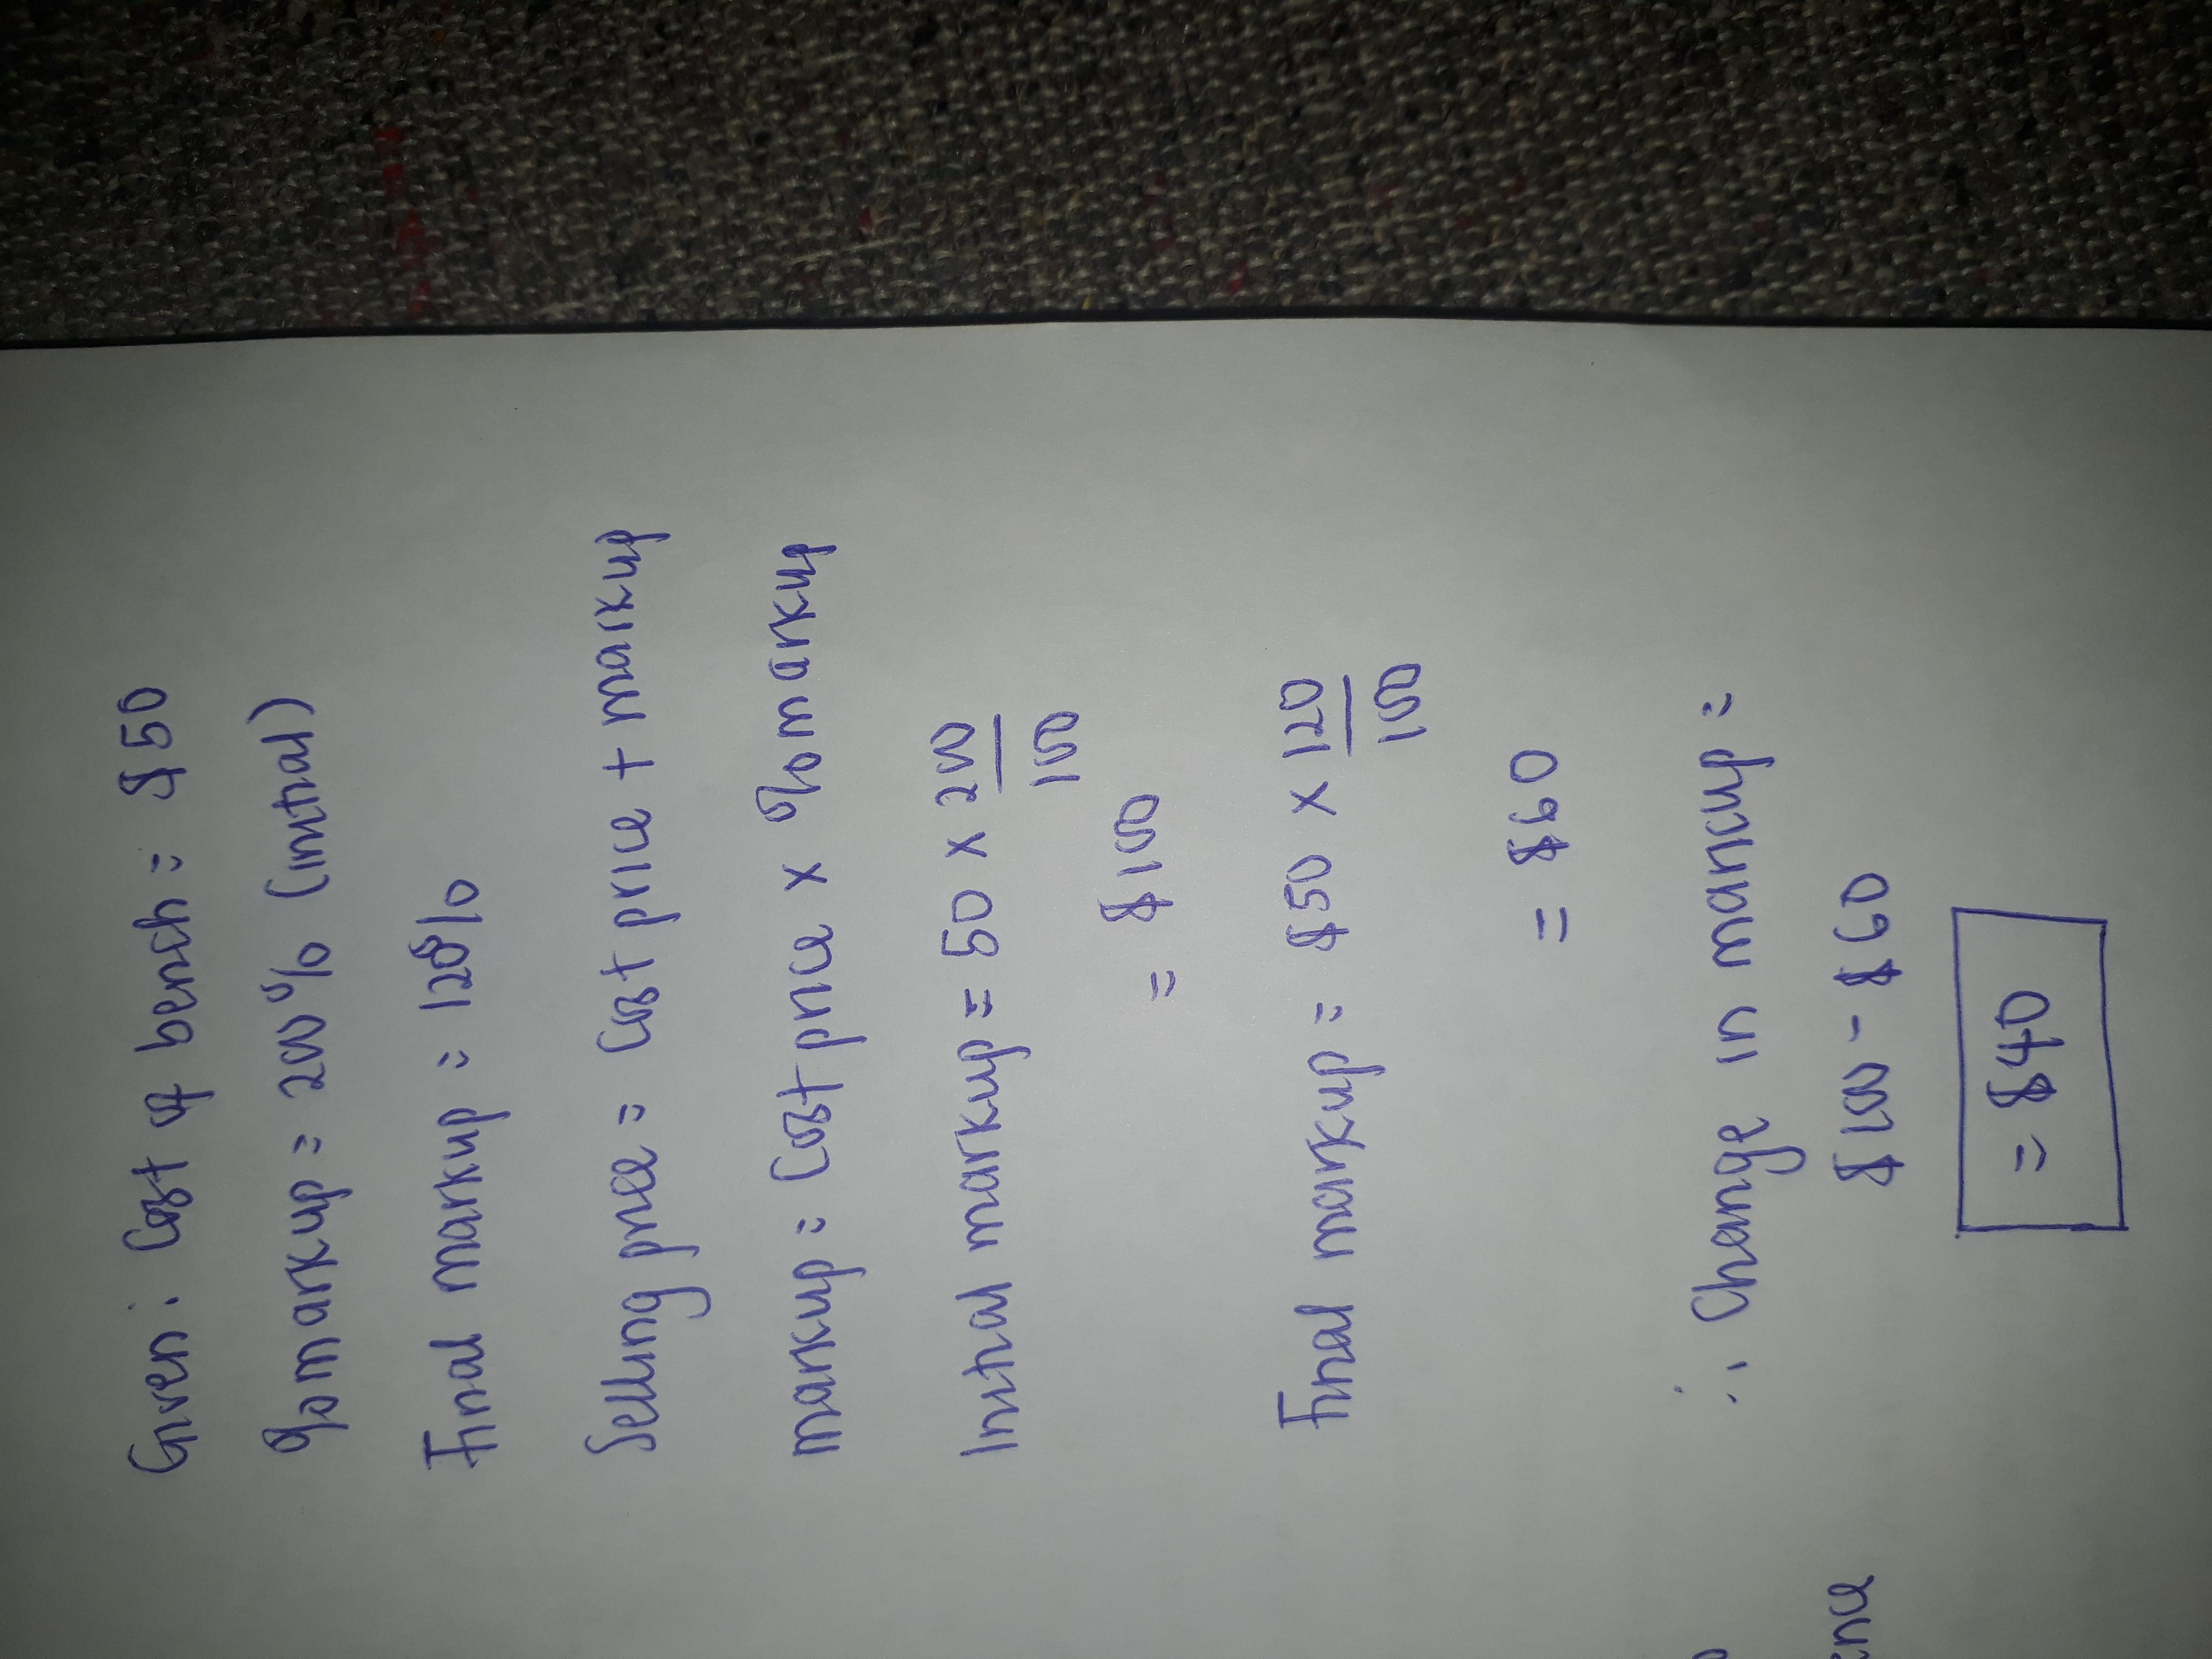 Given: Cost of bench = $50
% markup = 200% (initial)
Final markup = 120%
Selling price = Cost price + markup
markup = Cost price × % markup
Initial markup = 50 × 200/100
= $100
Final markup = $50 × 120/100
= $60
∴ Change in markup =
$100 - $60
= $40